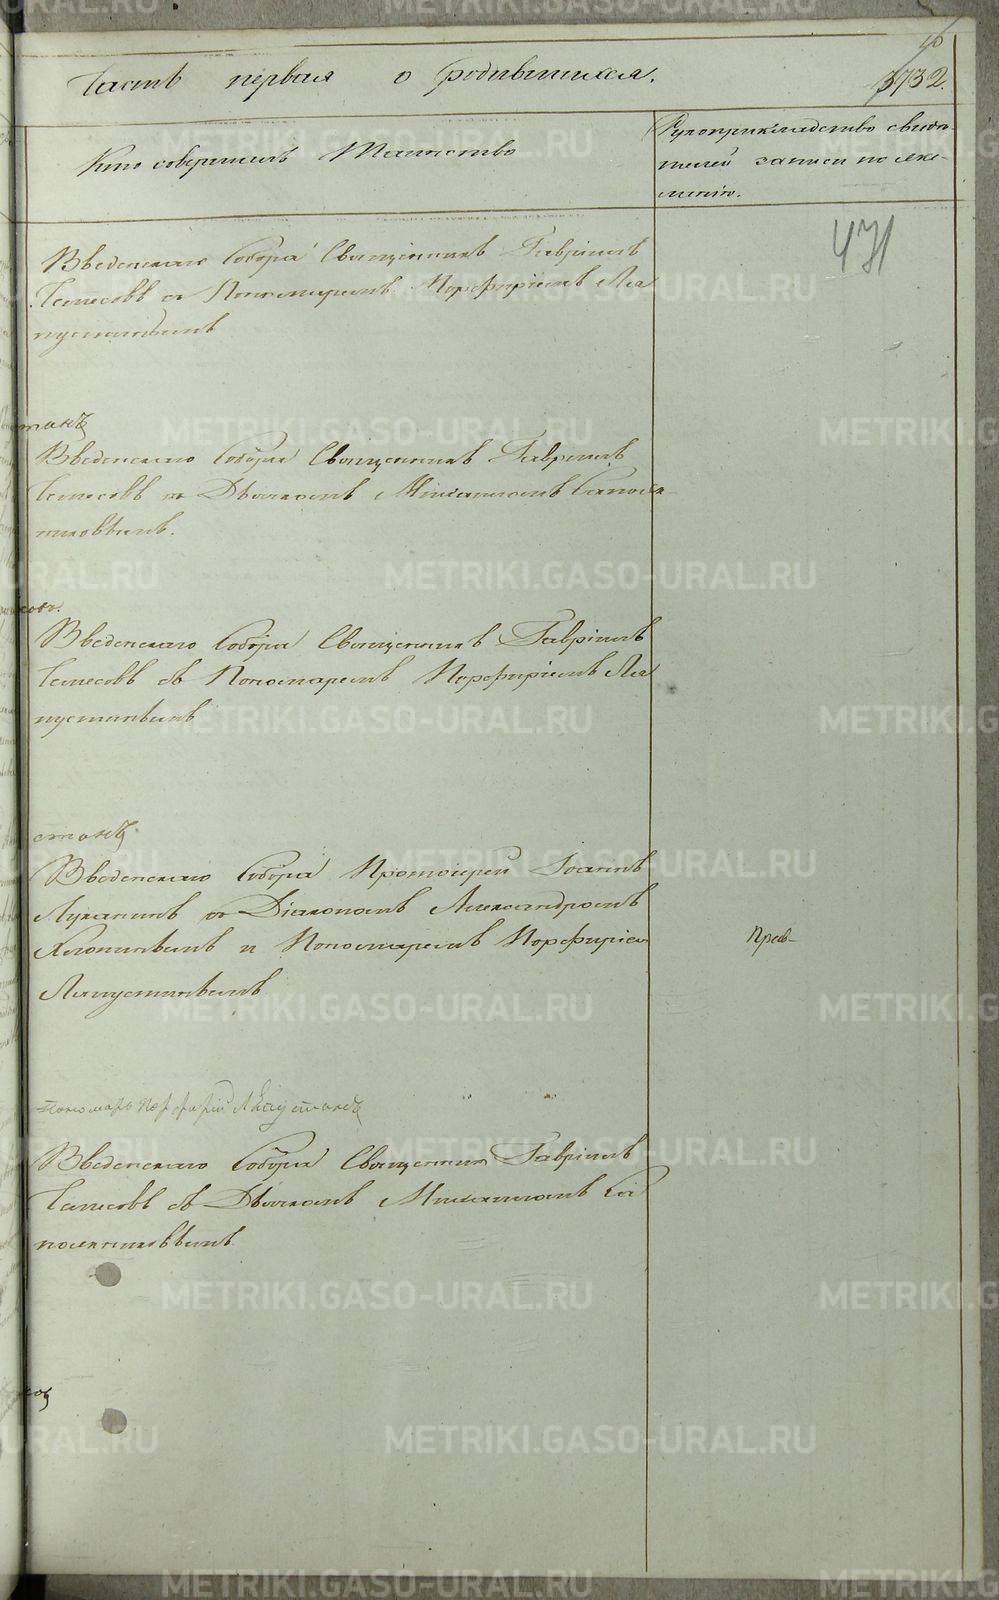 Часть первая о родившихся.
3732.
Кто совершилъ Таинство
Рукоприкладство свидѣ-
телей записи по же-
ланію.
471
Введенскаго Собора Священникъ Гавріилъ
съ Пономаремъ Порфиріемъ Ля
пустинымъ
Введенскаго Собора Священникъ Гавріилъ
Дьячкомъ Михаиломъ
Введенскаго Собора Священникъ Гавріилъ
съ Пономаремъ Порфиріемъ Ля
пустинымъ
Введенскаго Собора Протоіерей Іоаннъ
Луканинъ съ Діакономъ Александромъ
Хлопинымъ и Пономаремъ Порфиріем
Ляпустинымъ
Прав-
пономарь Порфирій Ляпустинъ
Введенскаго Собора Священник Гавріилъ
съ Дьячкомъ Михаиломъ
METRIKI.GASO-URAL.RU